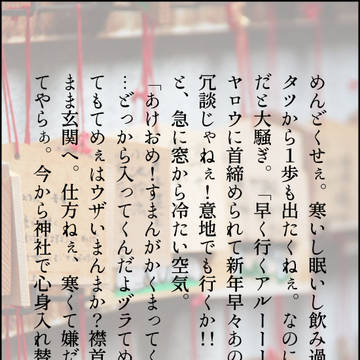 めんどくせぇ。寒いし眠いし飲み過
タツから1歩も出たくねぇ。なの
だと大騒ぎ。「早く行くアルーー
ヤロウに首締められて新年早々あの
冗談じゃねぇ！意地でも行くか!!
と、急に窓から冷たい空気。
「あけおめ！すまんがかくまってく
…どっから入ってくんだよヅラてめ
てもてめぇはウザいまんまか？襟首
まま玄関へ。仕方ねぇ、寒くて嫌だ
てやらぁ。今から神社で心身入れ替